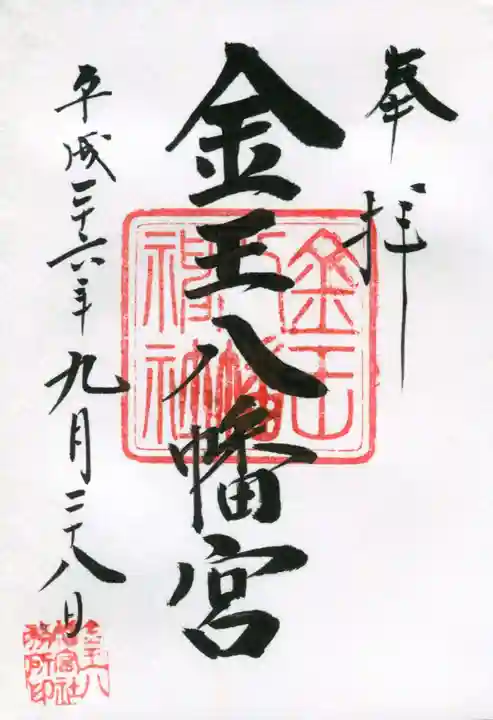 奉拝
金王八幡宮
金王八幡神社
平成二十六年九月二十八日
金王八幡宮社務所印